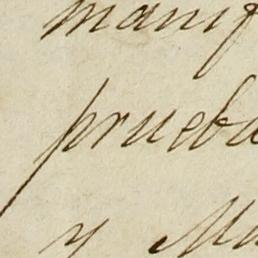 manif
prueba
y Ma